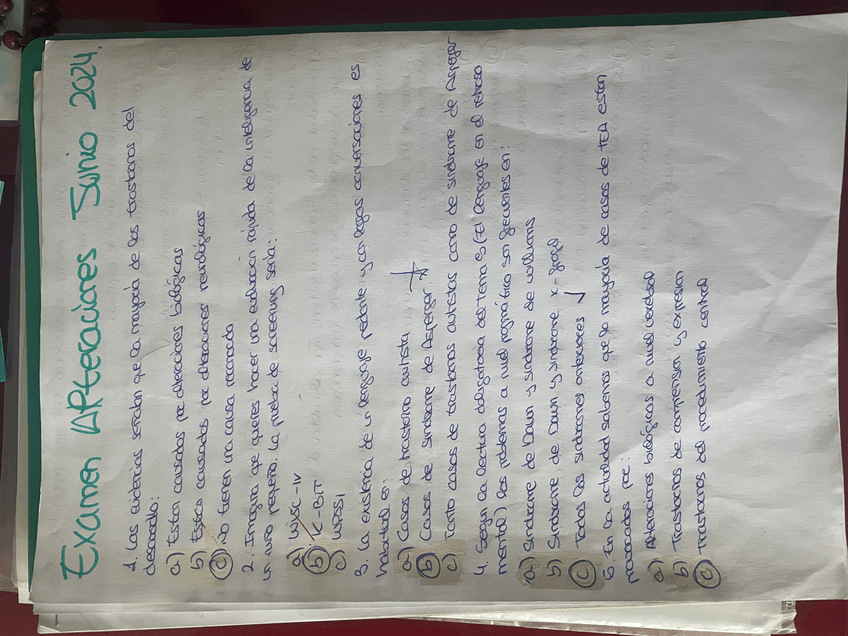 Examen Alteraciones Junio 2024.
1. Las evidencias señalan que la mayoría de los trastornos del
desarrollo:
a) Están causados por alteraciones biológicas
b) Están causados por alteraciones neurológicas
c) No tienen una causa reconocida
2. Imagina que quieres hacer una evaluación rápida de la inteligencia de
un niño pequeño. La prueba de screening sería:
a) WISC-IV
b) K-BIT
c) WPSSI
3. La existencia de un lenguaje pedante y con largas conversaciones es
habitual en:
a) Casos de trastorno autista
b) Casos de síndrome de Asperger
c) Tanto casos de trastornos autistas como de síndrome de Asperger
4. Según la lectura obligatoria del tema 5 (El lenguaje en el retraso
mental) los problemas a nivel pragmático son frecuentes en:
a) Síndrome de Down y síndrome de williams
b) Síndrome de Down y síndrome x-frágil
c) Todos los síndromes anteriores
5. En la actualidad sabemos que la mayoría de casos de TEA están
provocados por:
a) Alteraciones biológicas a nivel cerebral
b) Trastornos de comprensión y expresión
c) Trastornos del procedimiento central